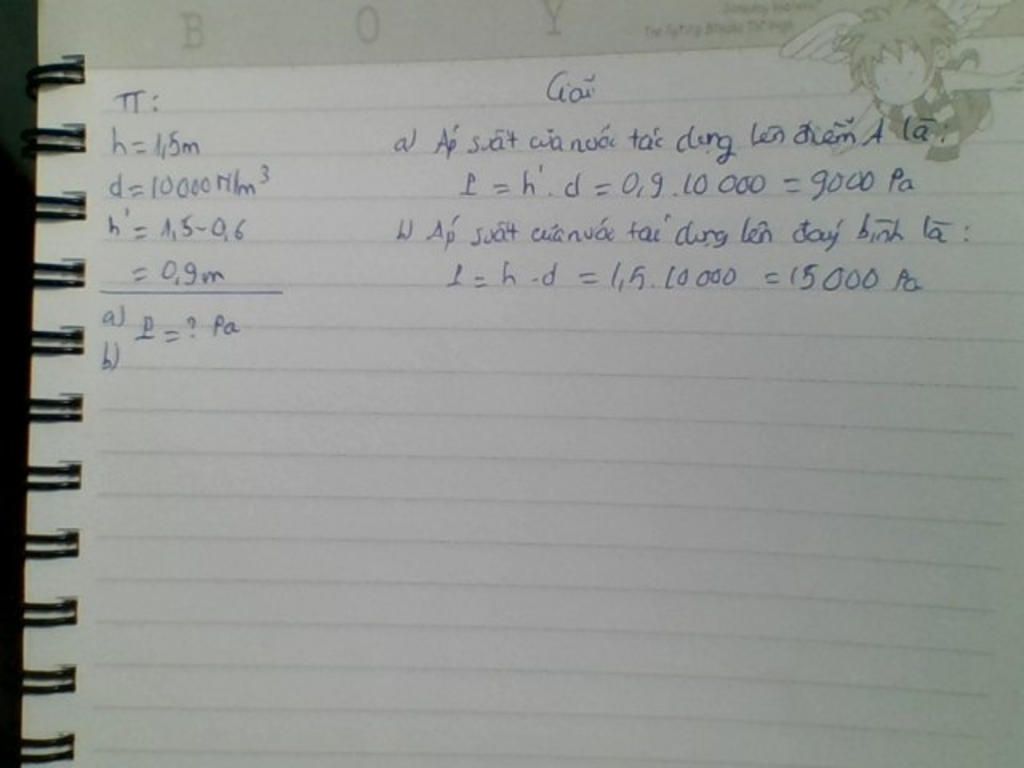 B O Y
TT:
h = 1,5m
d = 10000 N/m³
h' = 1,5-0,6
= 0,9m
a) P = ? Pa
b)
Giải
a) Áp suất của nước tác dụng lên điểm A là:
P = h'. d = 0,9.10 000 = 9000 Pa
b) Áp suất của nước tác dụng lên đáy bình là:
P = h . d = 1,5.10 000 = 15 000 Pa